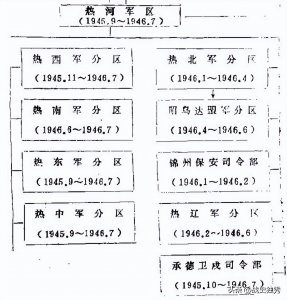 热河军区
(1945.9~1946.7)
热西军分区
(1945.11~1946.7)
热南军分区
(1946.6~1946.7)
热东军分区
(1945.9~1946.7)
热中军分区
(1945.9~1946.7)
热北军分区
(1946.1~1946.4)
昭乌达盟军分区
(1946.4~1946.6)
锦州保安司令部
(1946.1~1946.2)
热辽军分区
(1946.2~1946.6)
承德卫戍司令部
(1945.10~1946.7)